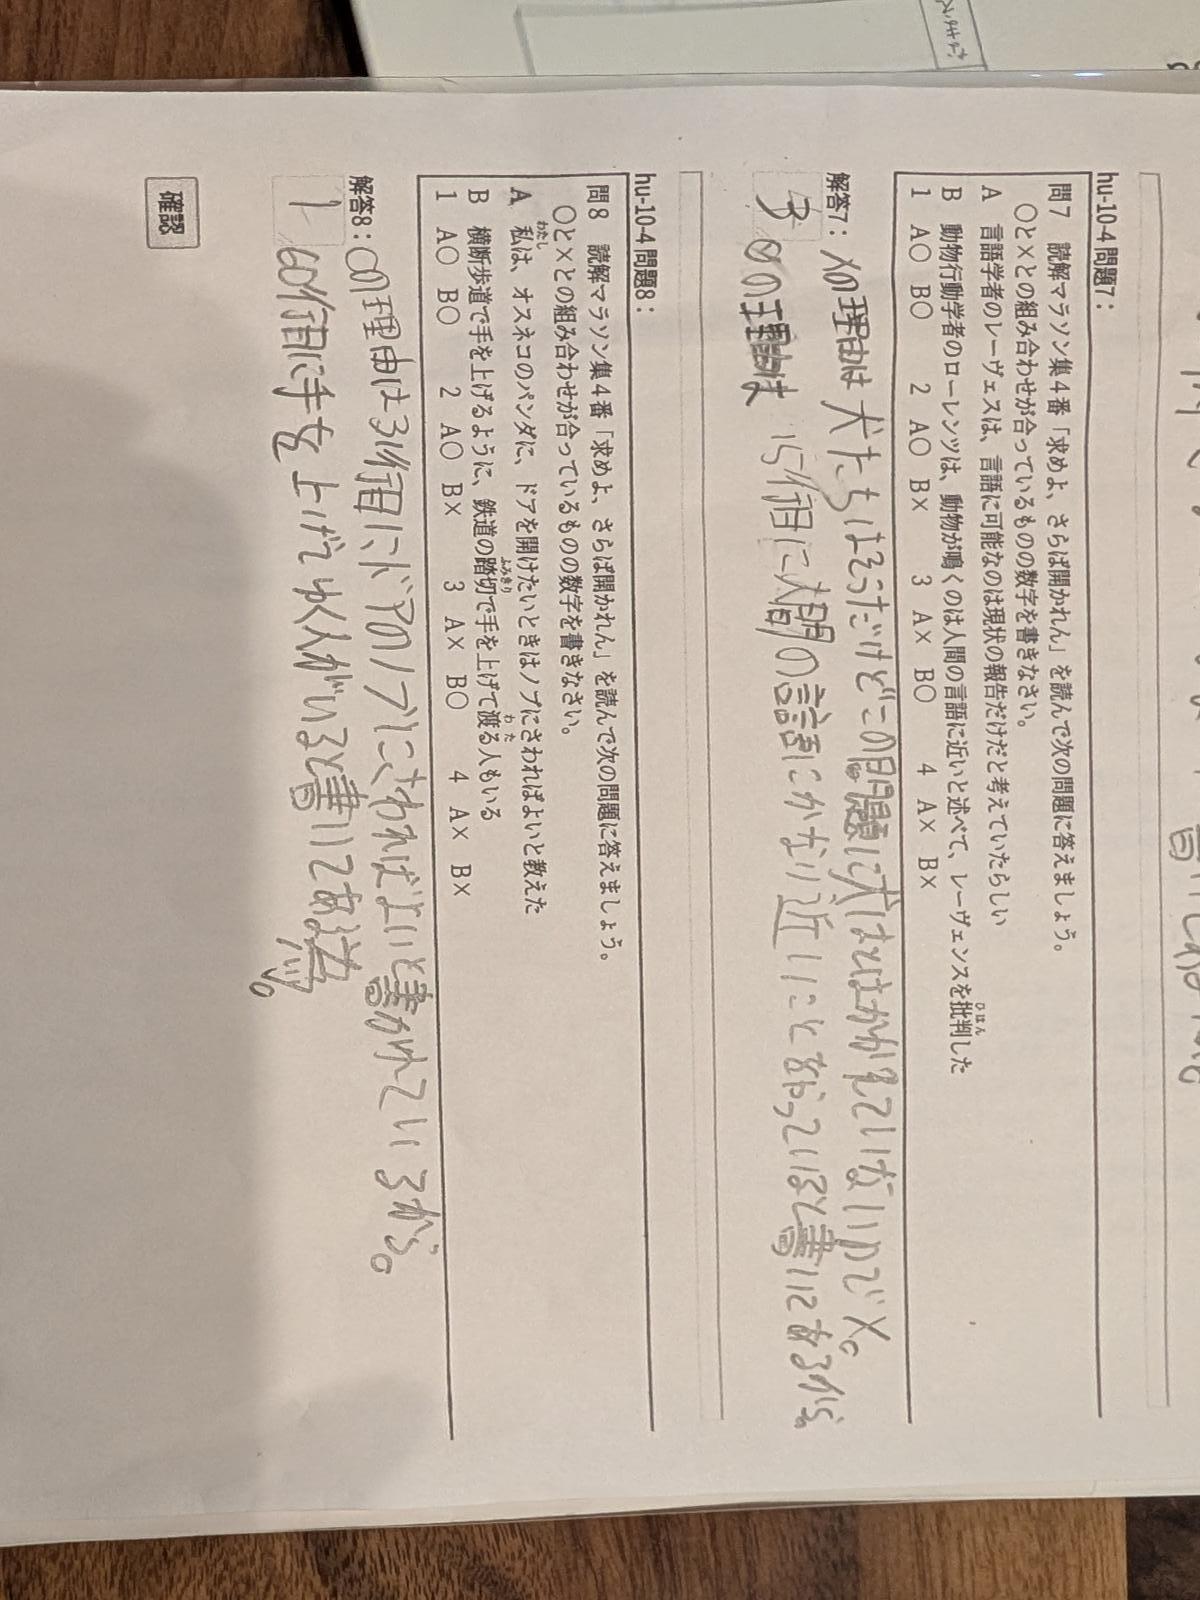 hu-10-4 問題7:
問7 読解マラソン集4番「求めよ、さらば開かれん」を読んで次の問題に答えましょう。
○と×との組み合わせが合っているものの数字を書きなさい。
A 言語学者のレーヴェスは、言語に可能なのは現状の報告だけだと考えていたらしい
B 動物行動学者のローレンツは、動物が鳴くのは人間の言語に近いと述べて、レーヴェンスを批判した
ひはん
1 A○ B○ 2 A○ B× 3 A× B○ 4 A× B×
解答7:×の理由は犬たちはそうだけどこの問題に犬はとはかかれていないので×。
3 ○の理由は 15行目に人間の言語にかなり近いことになっていると書いてあるから。
hu-10-4 問題8:
問8 読解マラソン集4番「求めよ、さらば開かれん」を読んで次の問題に答えましょう。
○と×との組み合わせが合っているものの数字を書きなさい。
わたし
A 私は、オスネコのパンダに、ドアを開けたいときはノブにさわればよいと教えた
ふみきり わた
B 横断歩道で手を上げるように、鉄道の踏切で手を上げて渡る人もいる
1 A○ B○ 2 A○ B× 3 A× B○ 4 A× B×
解答8:○の理由は31行目にドアのノブにさわればよいと書かれているから。
1 60行目に手を上げてゆく人がいると書いてある
確認